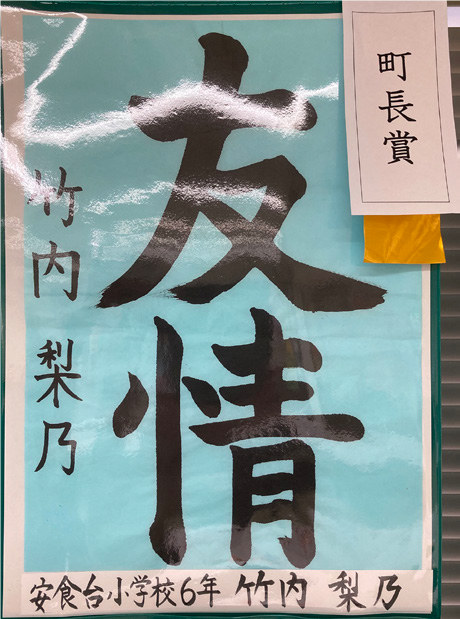 町長賞
友情
竹内 梨乃
安食台小学校6年 竹内 梨乃